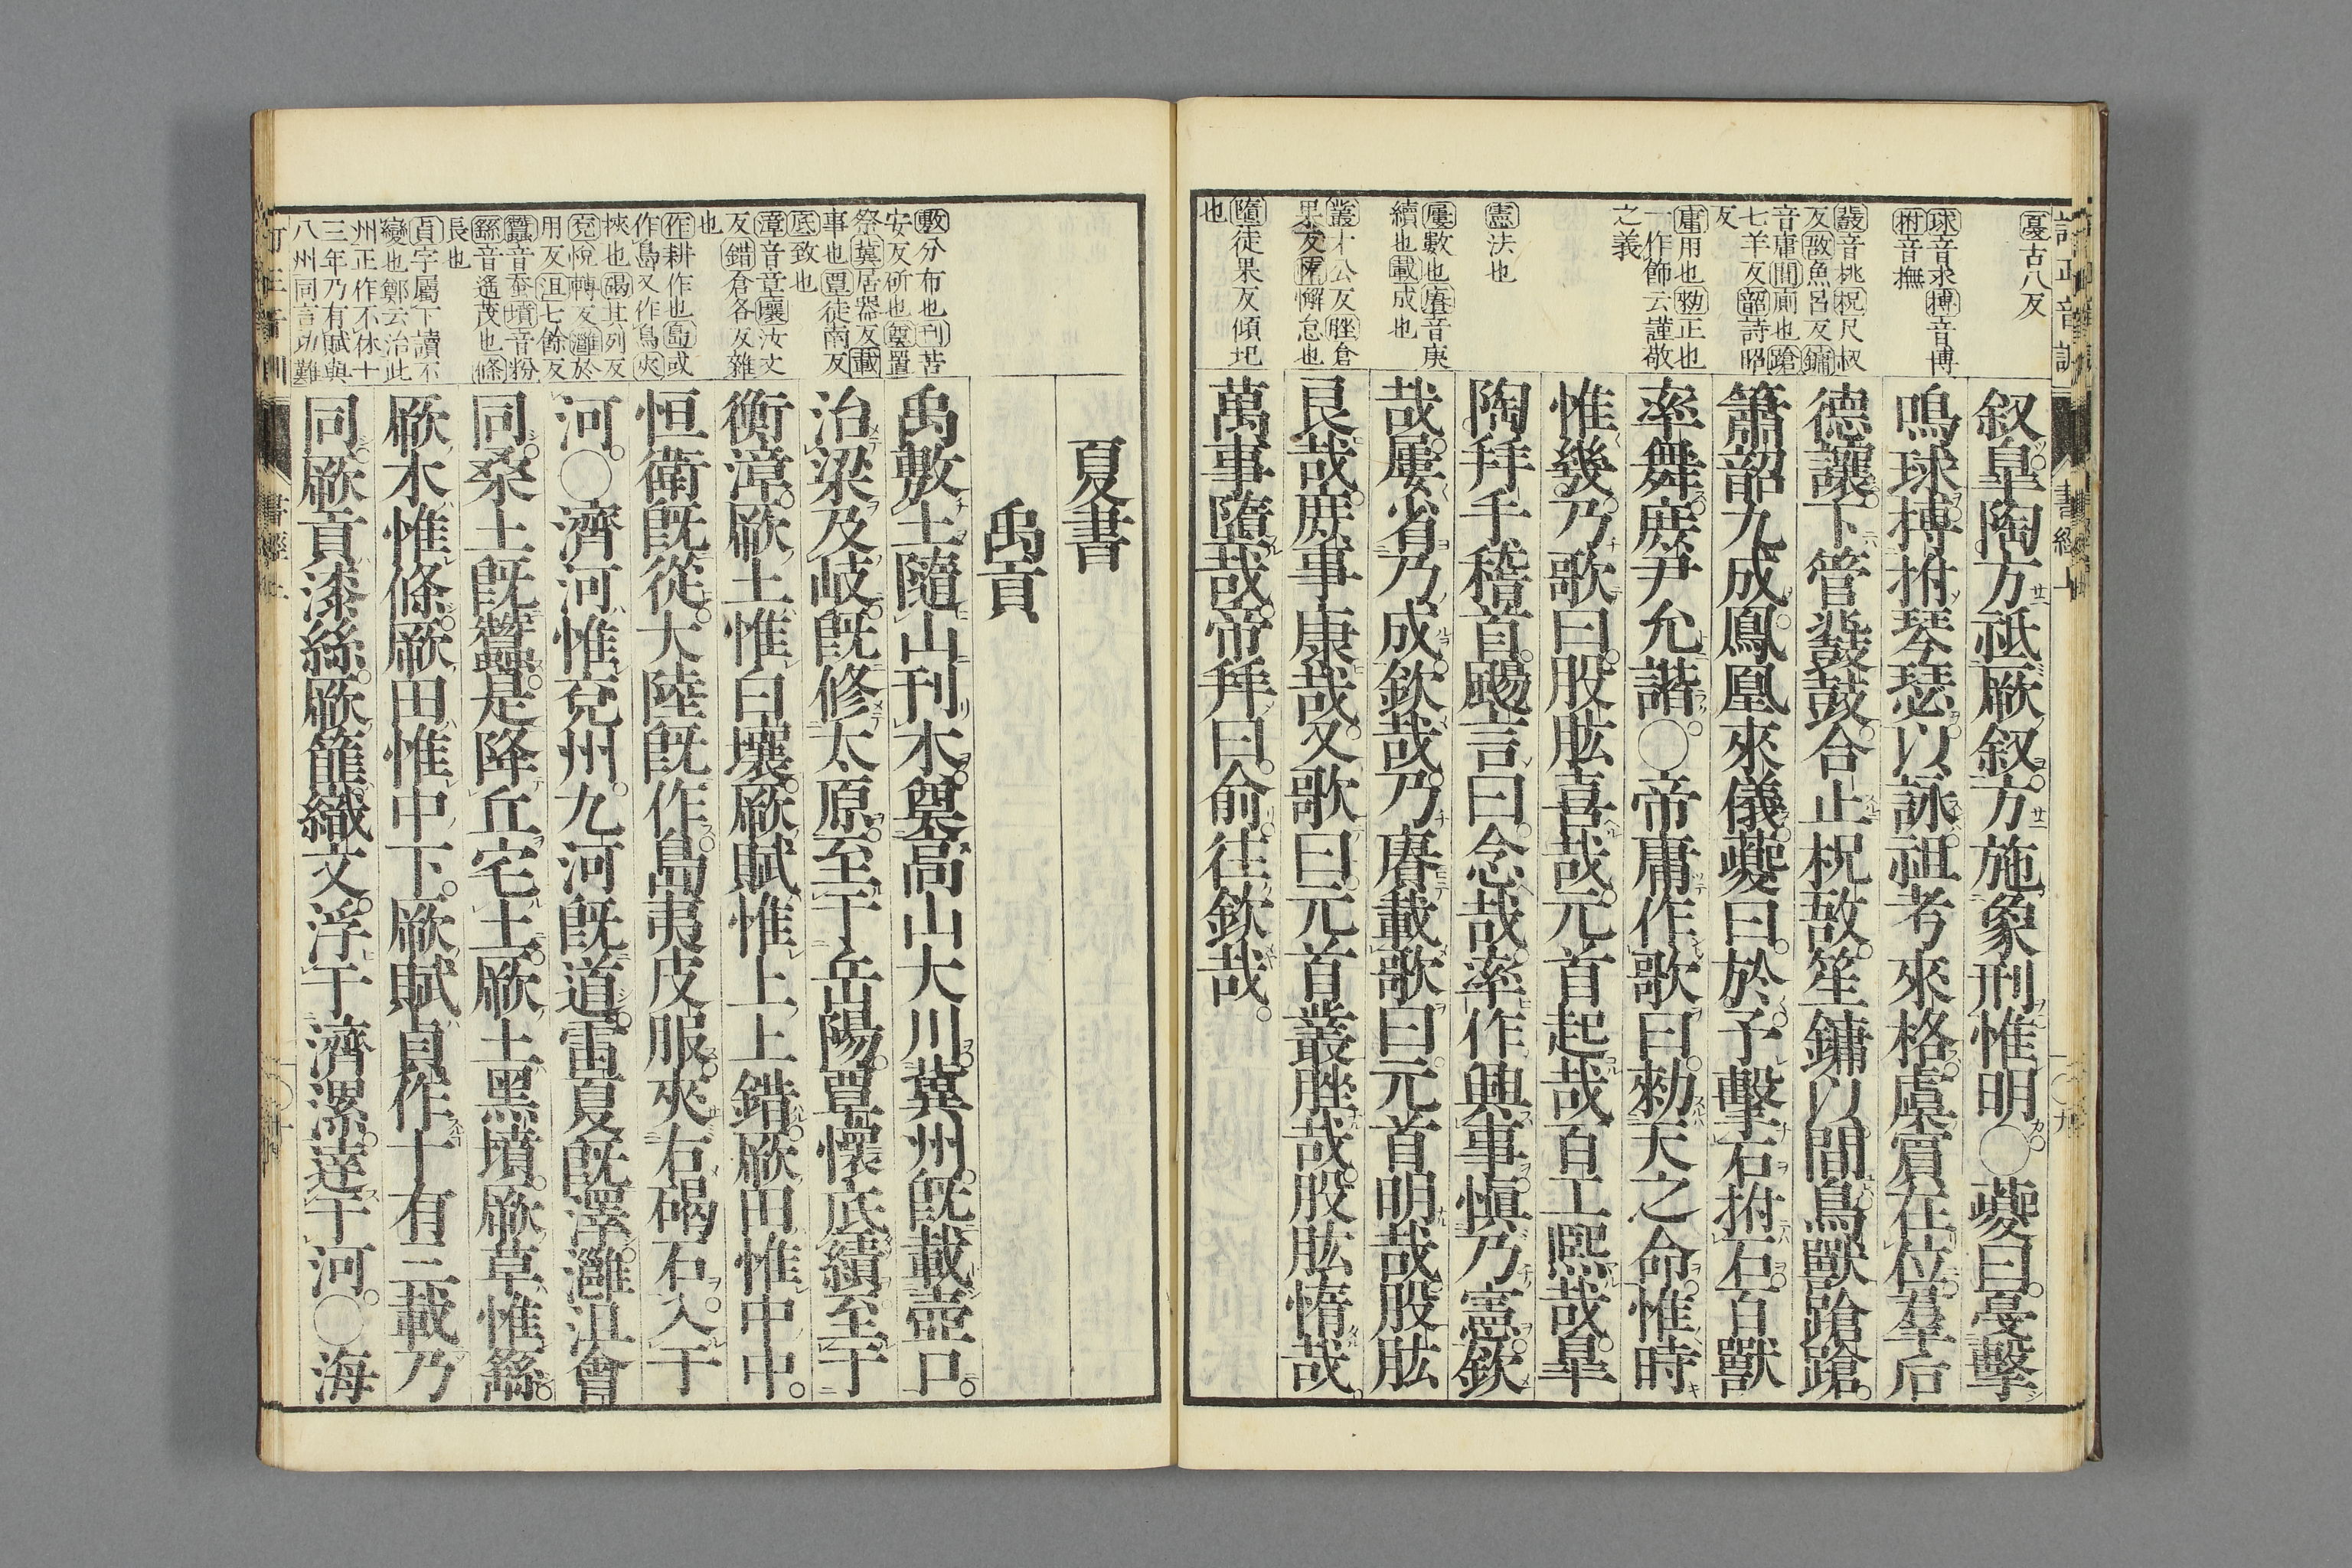 訂正音訓
書經上
戞古八反
球音求搏音博
拊音撫
鼗音桃柷尺叔
反敔魚呂反鏞
音庸間廁也蹌
七羊反韶詩昭
反
庸用也勑正也
一作飾云謹敬
之義
憲法也
屢數也賡音庚
續也載成也
叢才公反脞倉
果反惰懈怠也
隳徒果反傾圯
也
叙皐陶方祗厥叙方施象刑惟明○夔曰戞擊
鳴球搏拊琴瑟以詠祖考來格虞賓在位羣后
德讓下管鼗鼓合止柷敔笙鏞以間鳥獸蹌蹌
簫韶九成鳳凰來儀夔曰於予擊石拊石百獸
率舞庶尹允諧○帝庸作歌曰勑天之命惟時
惟幾乃歌曰股肱喜哉元首起哉百工熙哉皐
陶拜手稽首颺言曰念哉率作興事愼乃憲欽
哉屢省乃成欽哉乃賡載歌曰元首明哉股肱
良哉庶事康哉又歌曰元首叢脞哉股肱惰哉
萬事隳哉帝拜曰俞往欽哉
敷分布也刊苦
安反斫也奠置
祭冀居器反載
事也覃徒南反
厎致也
漳音章壤汝丈
反錯倉各反雜
也
作耕作也島或
作島又作鳥夾
挾也碣其列反
兗悅轉反灉於
用反沮七餘反
蠶音蚕墳音粉
繇音遙茂也條
長也
貞字屬下讀不
變也鄭云治此
州正作不休十
三年乃有賦與
八州同言功難
夏書
禹貢
禹敷土隨山刊木奠高山大川冀州旣載壺口
治梁及岐旣修太原至于岳陽覃懷厎績至于
衡漳厥土惟白壤厥賦惟上上錯厥田惟中中
恒衛旣從大陸旣作島夷皮服夾右碣石入于
河○濟河惟兗州九河旣道雷夏旣澤灉沮會
同桑土旣蠶是降丘宅土厥土黑墳厥草惟繇
厥木惟條厥田惟中下厥賦貞作十有三載乃
同厥貢漆絲厥篚織文浮于濟漯達于河○海